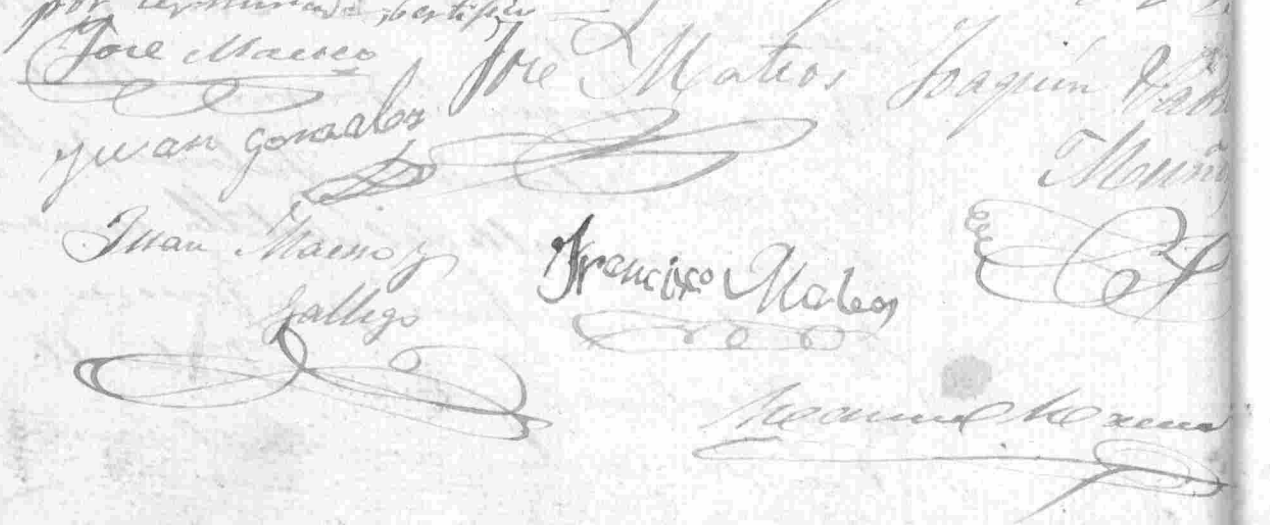 por terminado, certifico
Jose Maeso
Jose Mateos
Joaquin
Muño
Juan Gonzales
Juan Maeso y
Gallego
Francisco Mateos
Manuel